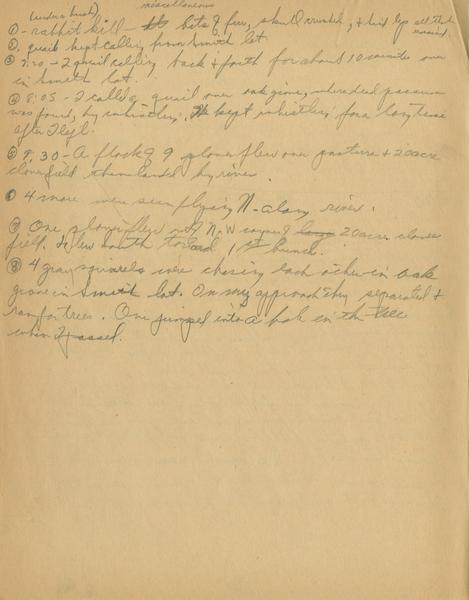 miscellaneous
(under bush)
① - rabbit kill - bits of fur, skull & hind leg all that
remained.
②. quail kept calling from Smith lot
③ 7:50 - 2 quail calling back & forth for about 10 minutes over
in Smith lot.
④ 8:05 - I called a quail over oak grove, where dead possum
was found, by whistling. kept whistling for a long time
after I left.
⑤ 9:30 - A flock of 9 plover flew over pasture & 20 acre
clover field then landed by river.
⑥ 4 more were seen flying N - along river.
⑦ One plover flew out of N-W corner of large 20 acre clover
field. & flew south toward 1st bunch.
⑧ 4 gray squirrels were chasing each other in oak
grove in Smith lot. On my approach they separated &
ran for trees. One jumped into a hole in the tree
when I passed.